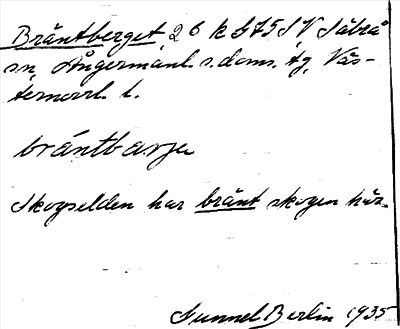 Bräntberget, 2 6 k S75SV Säbrå
sn, Ångermanl. s. doms. tg, Väs-
ternorrl. l.
bräntbarje
Skogselden har bränt skogen här.
Gunnel Berlin 1935